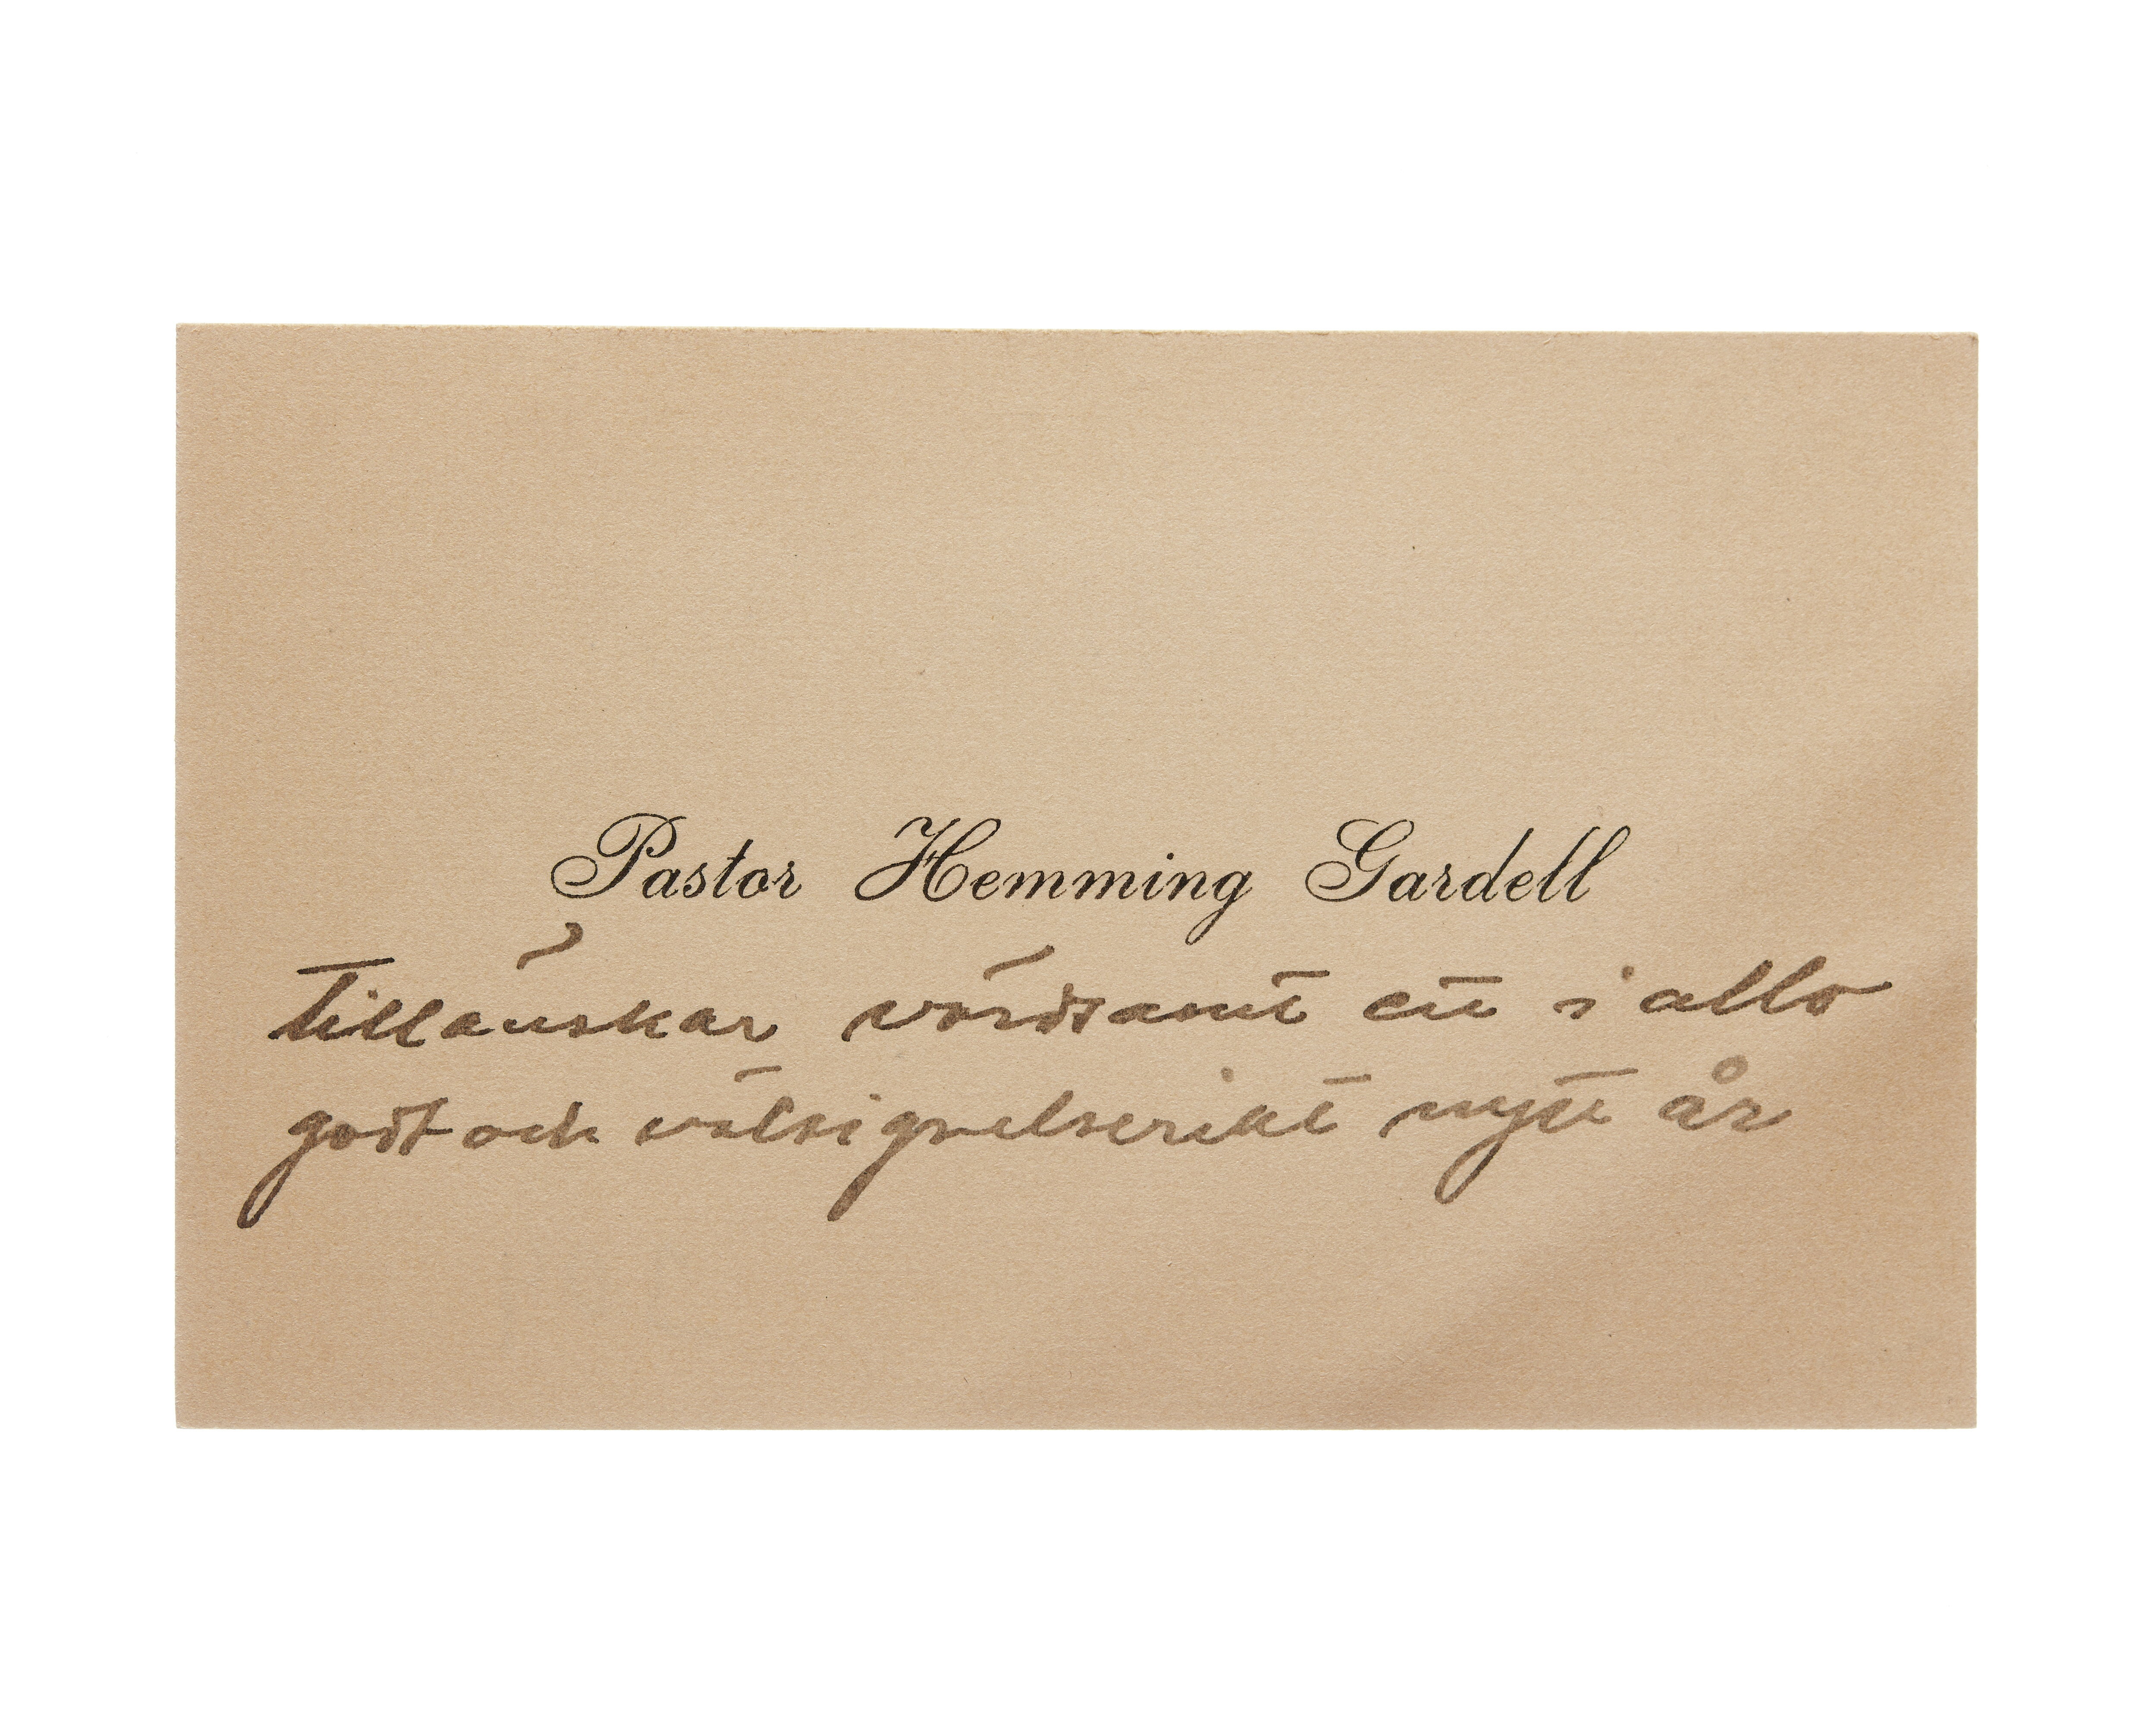 Pastor Hemming Gardell
tillönskar vördsamt ett i allo
godt och välsignelserikt nytt år